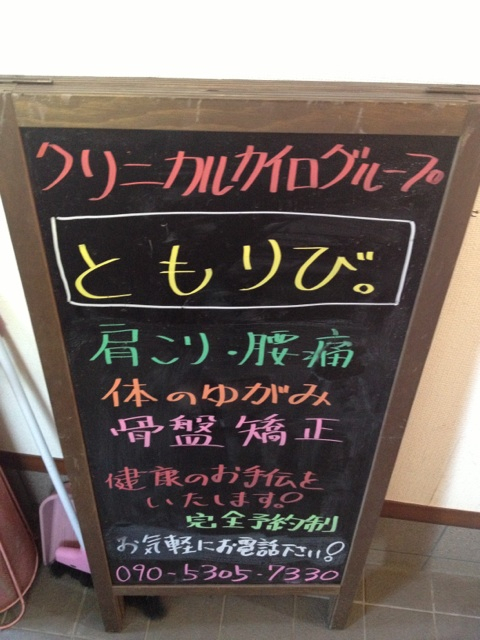 クリニカルカイログループ
ともりび。
肩こり・腰痛
体のゆがみ
骨盤矯正
健康のお手伝を
いたします。!
完全予約制
お気軽にお電話下さい!
090-5305-7330